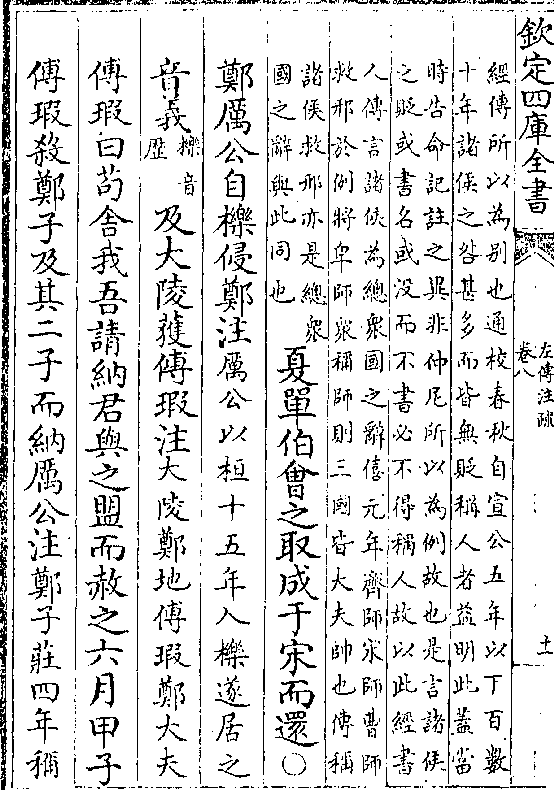 欽定四庫全書
左傳注疏
卷八
十一
經傳所以為别也通校春秋自宣公五年以下百數
十年諸侯之咎甚多而皆無貶稱人者益明此蓋當
時告命記註之異非仲尼所以為例故也是言諸侯
之貶或書名或没而不書必不得稱人故以此經書
人傳言諸侯為總衆國之辭僖元年齊師宋師曹師
救邢於例將卑師衆稱師則三國皆大夫帥也傳稱
諸侯救邢亦是總衆
國之辭與此同也
夏單伯會之取成于宋而還○
鄭厲公自櫟侵鄭注厲公以桓十五年入櫟遂居之
音義櫟音歷及大陵獲傅瑕注大陵鄭地傅瑕鄭大夫
傅瑕曰苟舍我吾請納君與之盟而赦之六月甲子
傅瑕殺鄭子及其二子而納厲公注鄭子莊四年稱